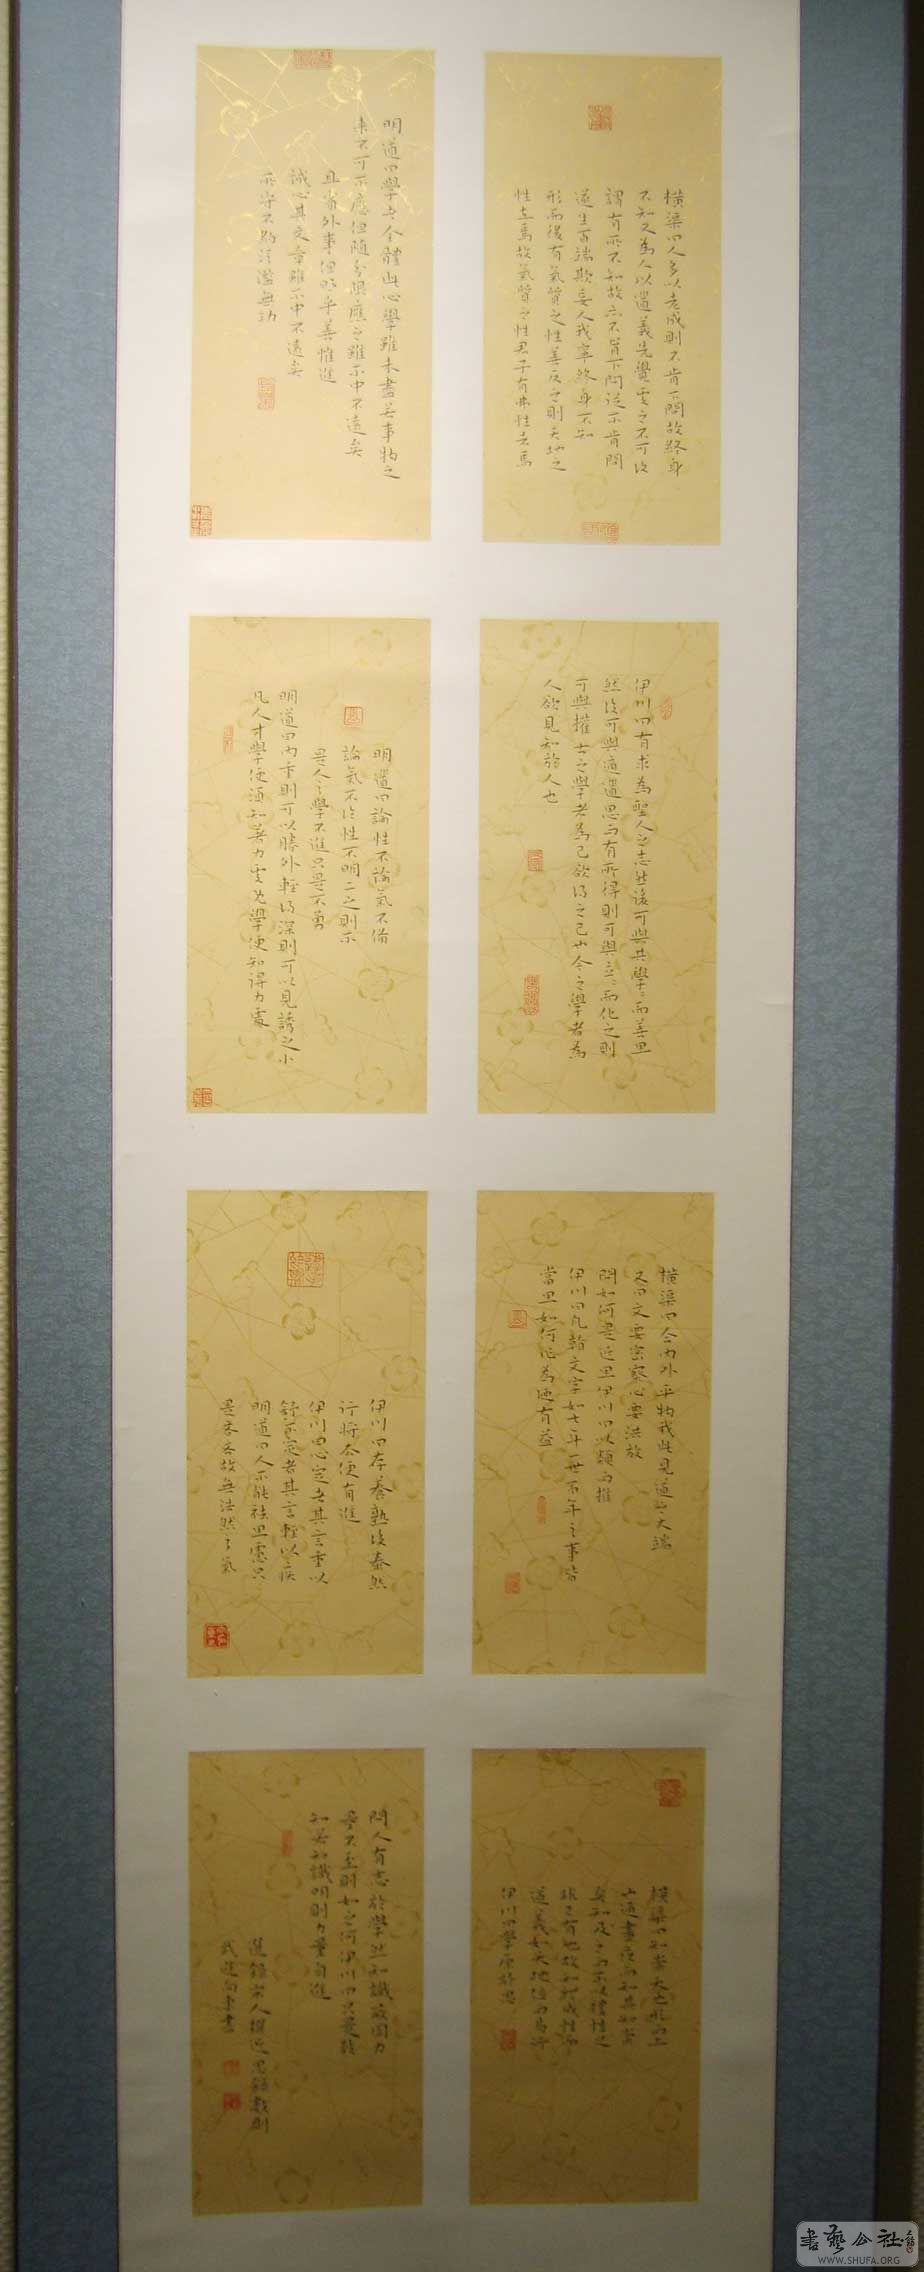 横渠曰人多以老成則不肯下問故終身
不知又為人以道義先覺處之不可復
謂有所不知故亦不肯下問從不肯問
遂生百端欺妄人我寧終身不知
形而後有氣質之性善反之則天地之
性存焉故氣質之性君子有弗性者焉
明道曰學者全體此心學雖未盡若事物之
來不可不應但隨分限應之雖不中不遠矣
且省外事但明乎善惟進
誠心其文章雖不中不遠矣
所守不約泛濫無功
伊川曰有求為聖人之志然後可與共學〻而善思
然後可與適道思而有所得則可與立〻而化之則
可與權 古之學者為己欲得之己也今之學者為
人欲見知於人也
明道曰論性不論氣不備
論氣不論性不明二之則不
是今之學不進只是不勇
明道曰內重則可以勝外輕得深則可以見誘之小
凡人才學便須知著力處既學便知得力處
横渠曰合內外平物我此見道之大端
又曰文要密察心要洪放
問如何是近思伊川曰以類而推
伊川曰凡解文字如七年一世百年之事皆
當思如何作為便有益
伊川曰存養熟後泰然
行將去便有進
伊川曰心定者其言重以
舒不定者其言輕以疾
明道曰人不能祛思慮只
是吝吝故無浩然之氣
横渠曰知崇天也形而上
也通晝夜而知其知崇
矣知及之而不以禮性之
非己有也故知禮成性而
道義出如天地位而易行
伊川曰學原於思
問人有志於學然知識蔽固力
量不至則如之何伊川曰只是致
知若知識明則力量自進
選錄宋人撰近思錄數則
書藝公社
WWW.SHUFA.ORG